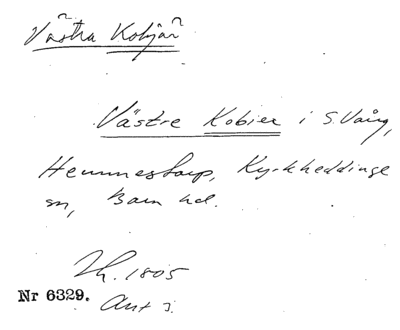 Västra Kobjär
Västre Kobier i S. Vång,
Hemmestorp, Kyrkheddinge
sn, Bara hd.
Lh. 1805
Nr 6329.
Ant 3.